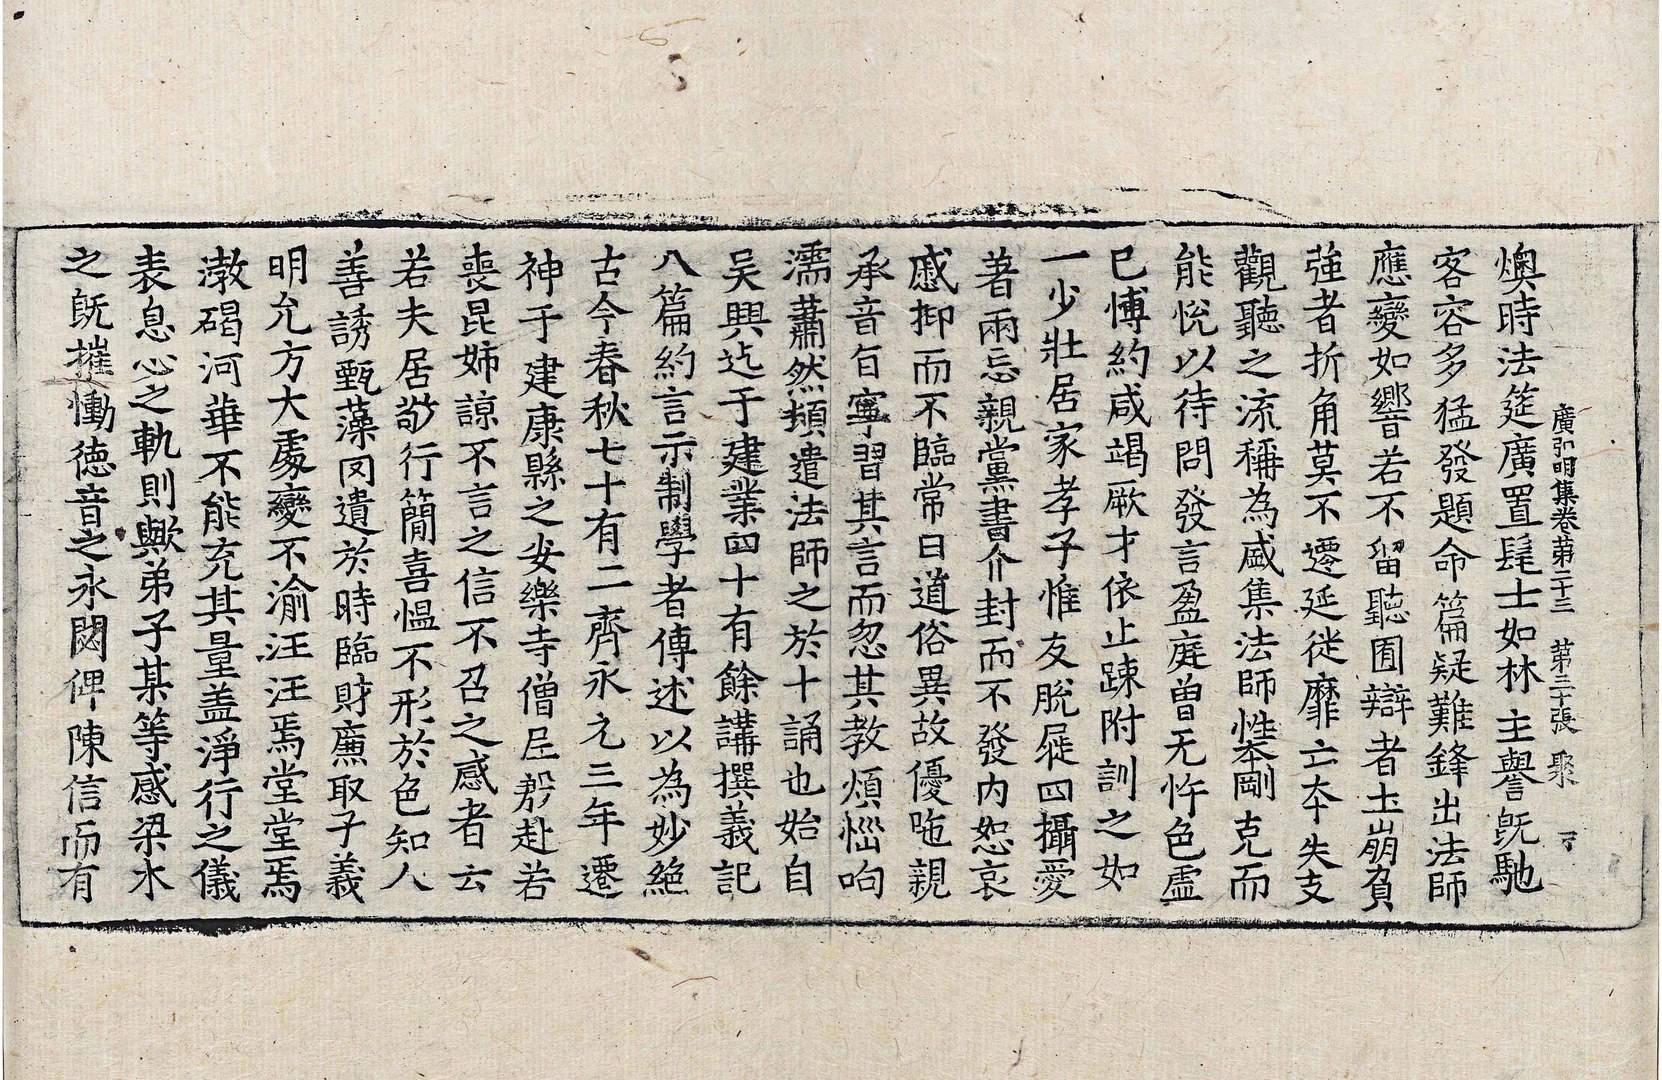 廣弘明集卷第二十三 第三十張 聚
燠時法筵廣置髦士如林主譽旣馳
客容多猛發題命篇疑難鋒出法師
應變如響若不留聽囿辯者土崩負
強者折角莫不遷延徙靡亡夲失支
觀聽之流稱為盛集法師性夲剛克而
能恱以待問發言盈庭曾无忤色虛
已慱約咸竭厥才依止踈附訓之如
一少壯居家孝子惟友脫屣四攝愛
著兩忘親黨書介封而不發內恕哀
慼抑而不臨常曰道俗異故優咃親
承音旨寧習其言而忽其教煩惱呴
濡蕭然頓遣法師之於十誦也始自
吴興迄于建業四十有餘講撰義記
八篇約言示制學者傳述以為妙絕
古今春秋七十有二齊永元三年遷
神于建康縣之安樂寺僧尼殷赴若
喪昆姉諒不言之信不召之感者云
若夫居敬行簡喜愠不形於色知人
善誘甄藻罔遺於時臨財廉取予義
明允方大處變不渝汪汪焉堂堂焉
渤碣河華不能充其量盖淨行之儀
表息心之軌則歟弟子某等感梁木
之旣摧慟德音之永閟俾陳信而有